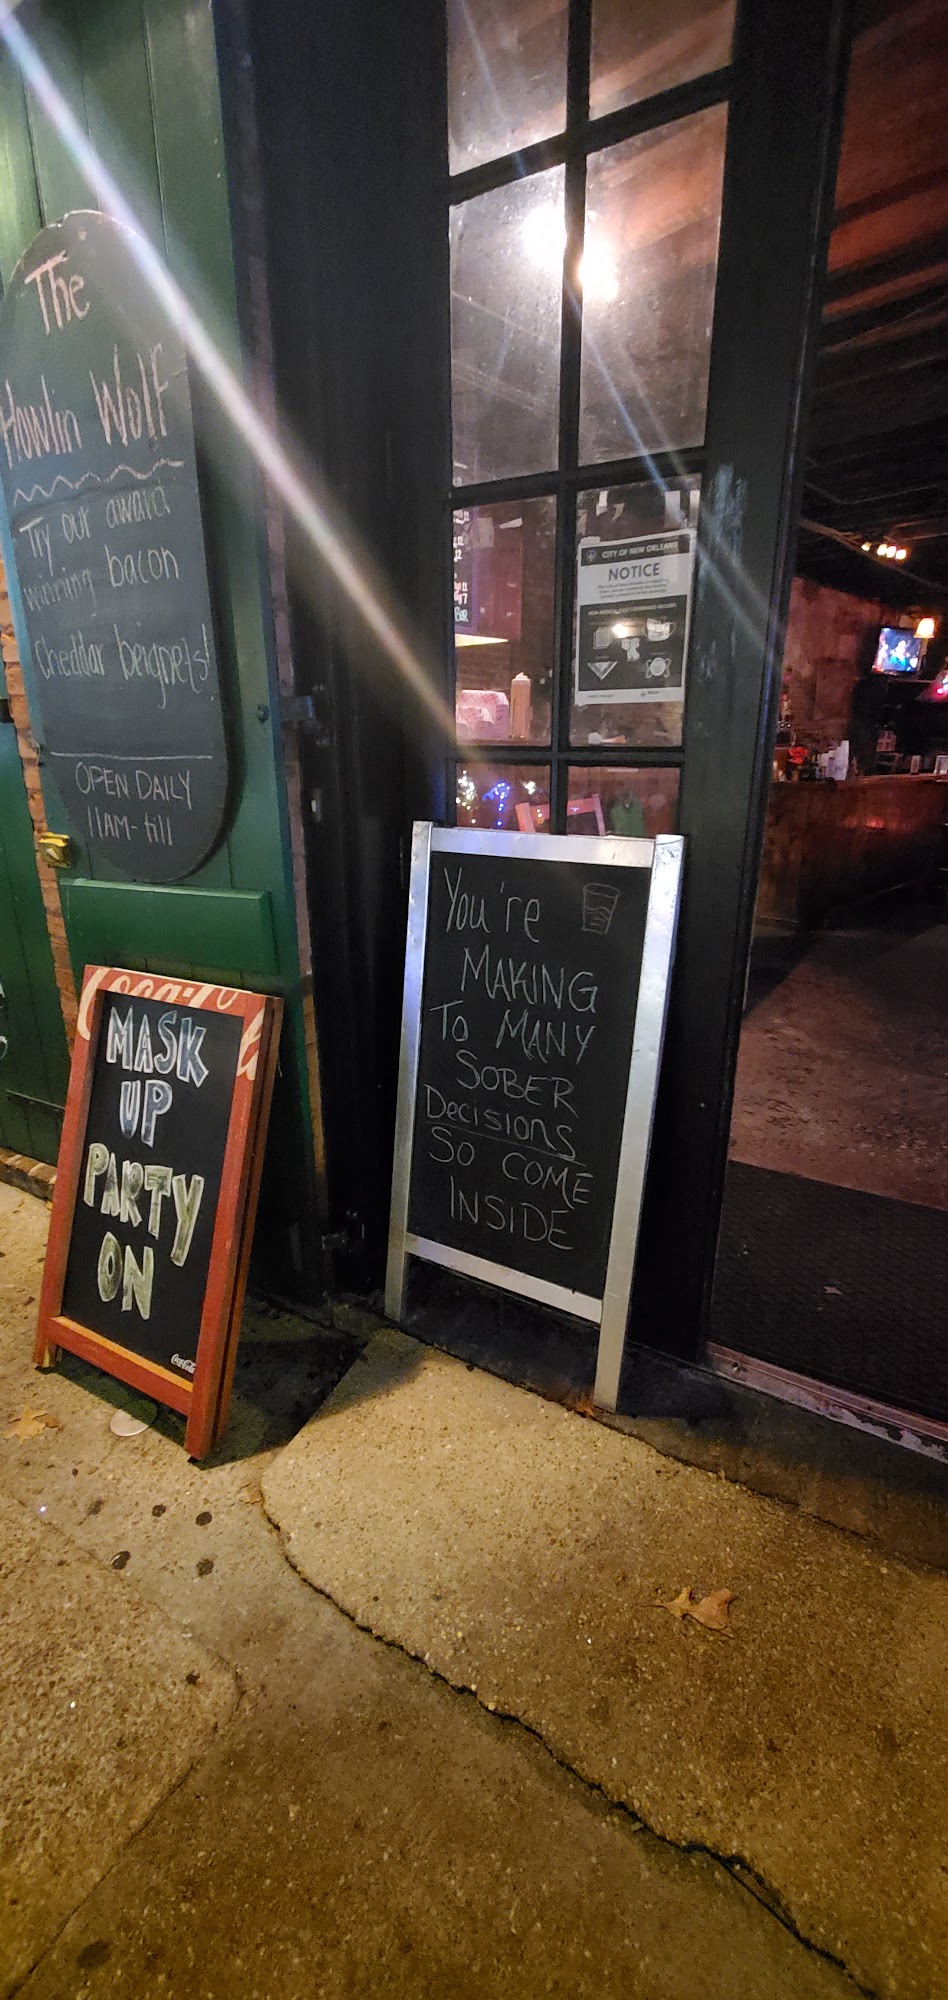 The
Howlin Wolf
Try our award
winning bacon
cheddar beignets!
OPEN DAILY
11AM-till
Coca-Cola
MASK
UP
PARTY
ON
Coca-Cola
You're
MAKING
To MANY
SOBER
Decisions
SO COME
INSIDE
CITY OF NEW ORLEANS
NOTICE